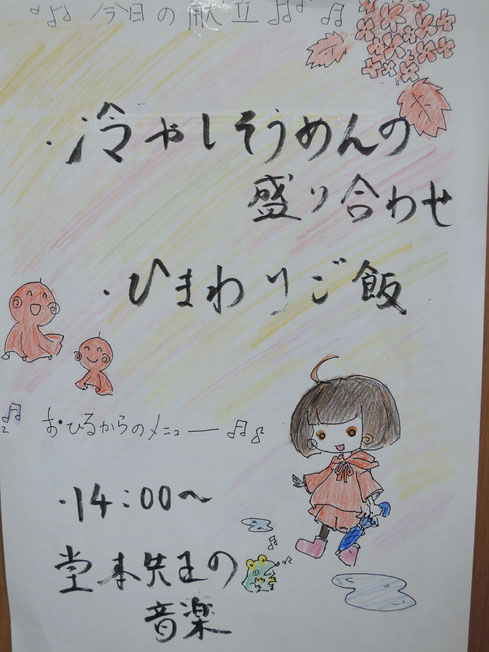 ♪♫ 今日の献立 ♫♪ ♫
・冷やしそうめんの
盛り合わせ
・ひまわりご飯
♫ おひるからのメニュー ♫♪
・14:00〜
堂本先生の
音楽